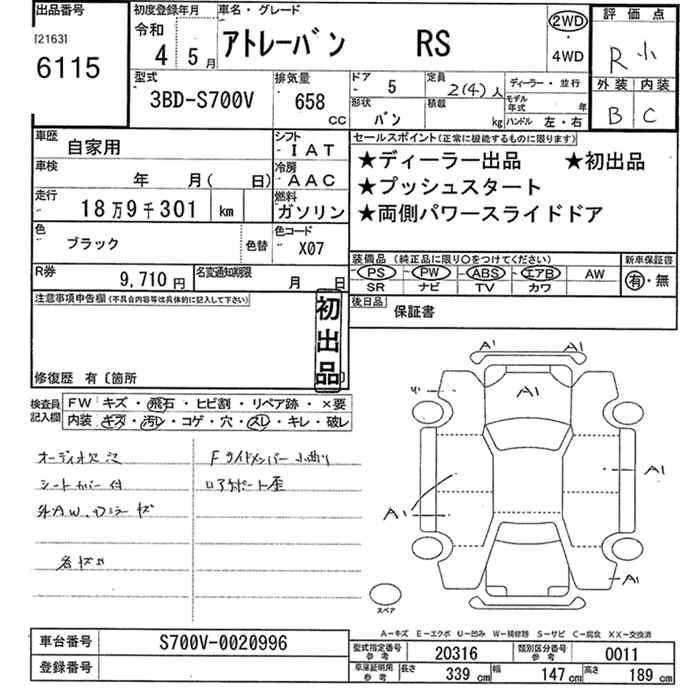 出品番号
[2163]
6115
初度登録年月
令和
4 5月
車名・グレード
アトレーバン RS
2WD
・
4WD
評価点
R 小
外装 内装
B C
型式
3BD-S700V
排気量
658
CC
ドア
5
形状
バン
定員
2(4)人
積載
kg
ディーラー・並行
モデル年式 年
ハンドル 左・右
車歴
自家用
車検
年 月( 日)
走行
18万9千301 km
色
ブラック
色替
シフト
IAT
冷房
AAC
燃料
ガソリン
色コード
X07
R券
9,710円
名変通知期限
月 日
セールスポイント(正常に機能するものに限ります)
★ディーラー出品 ★初出品
★プッシュスタート
★両側パワースライドドア
装備品 (純正品に限り○をつけてください)
PS PW ABS エアB AW
SR ナビ TV カワ
新車保証書
有・無
後日品
保証書
注意事項申告欄(不具合内容等は具体的に記入して下さい)
初出品
修復歴 有〔箇所 〕
検査員記入欄
FW キズ・飛石・ヒビ割・リペア跡・×要
内装 キズ・汚レ・コゲ・穴・スレ・キレ・破レ
オーディオ欠次
シートカバー付
外A.W.ドミラーキズ
Fサイドメンバー小曲り
ロアサポート歪
A1 A1
A1
A1
A1
A1
スペア
A-キズ E-エクボ U-凹み W-補修跡 S-サビ C-腐食 XX-交換済
車台番号
S700V-0020996
登録番号
型式指定番号
参考
20316
類別区分番号
参考
0011
車庫証明用
参考
長さ 339 cm 幅 147 cm 高さ 189 cm